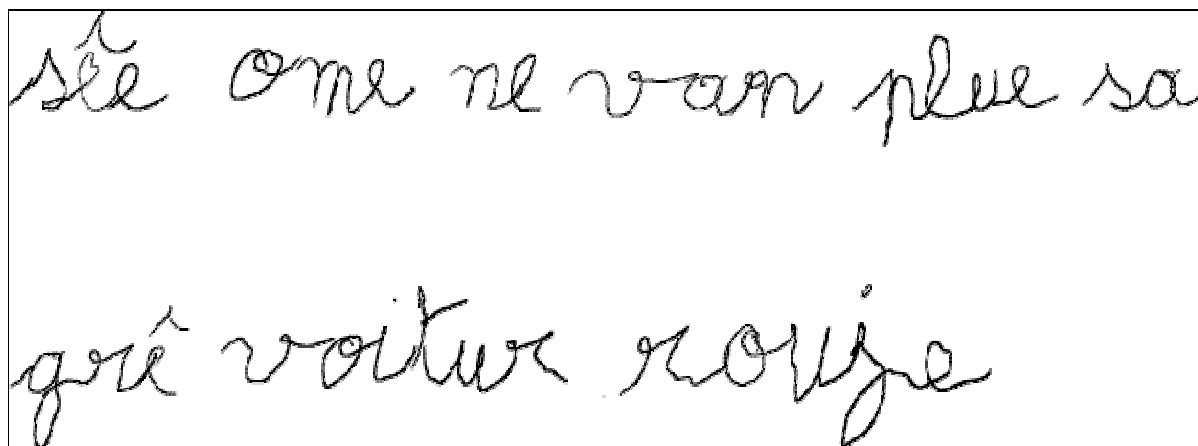 sêe ome ne van plue sa
grê voitur rouje